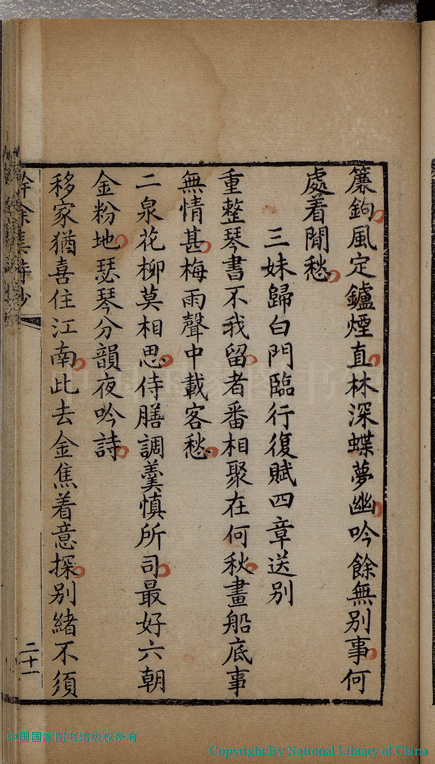 簾鉤風定鑪煙直林深蝶夢幽吟餘無別事何
處着閒愁
三妹歸白門臨行復賦四章送別
重整琴書不我留者番相聚在何秋畫船底事
無情甚梅雨聲中載客愁
二泉花柳莫相思侍膳調羹慎所司最好六朝
金粉地瑟琴分韻夜吟詩
移家猶喜住江南此去金焦着意探別緒不須
二十一
中国国家图书馆版权所有
Copyright By National Library of China